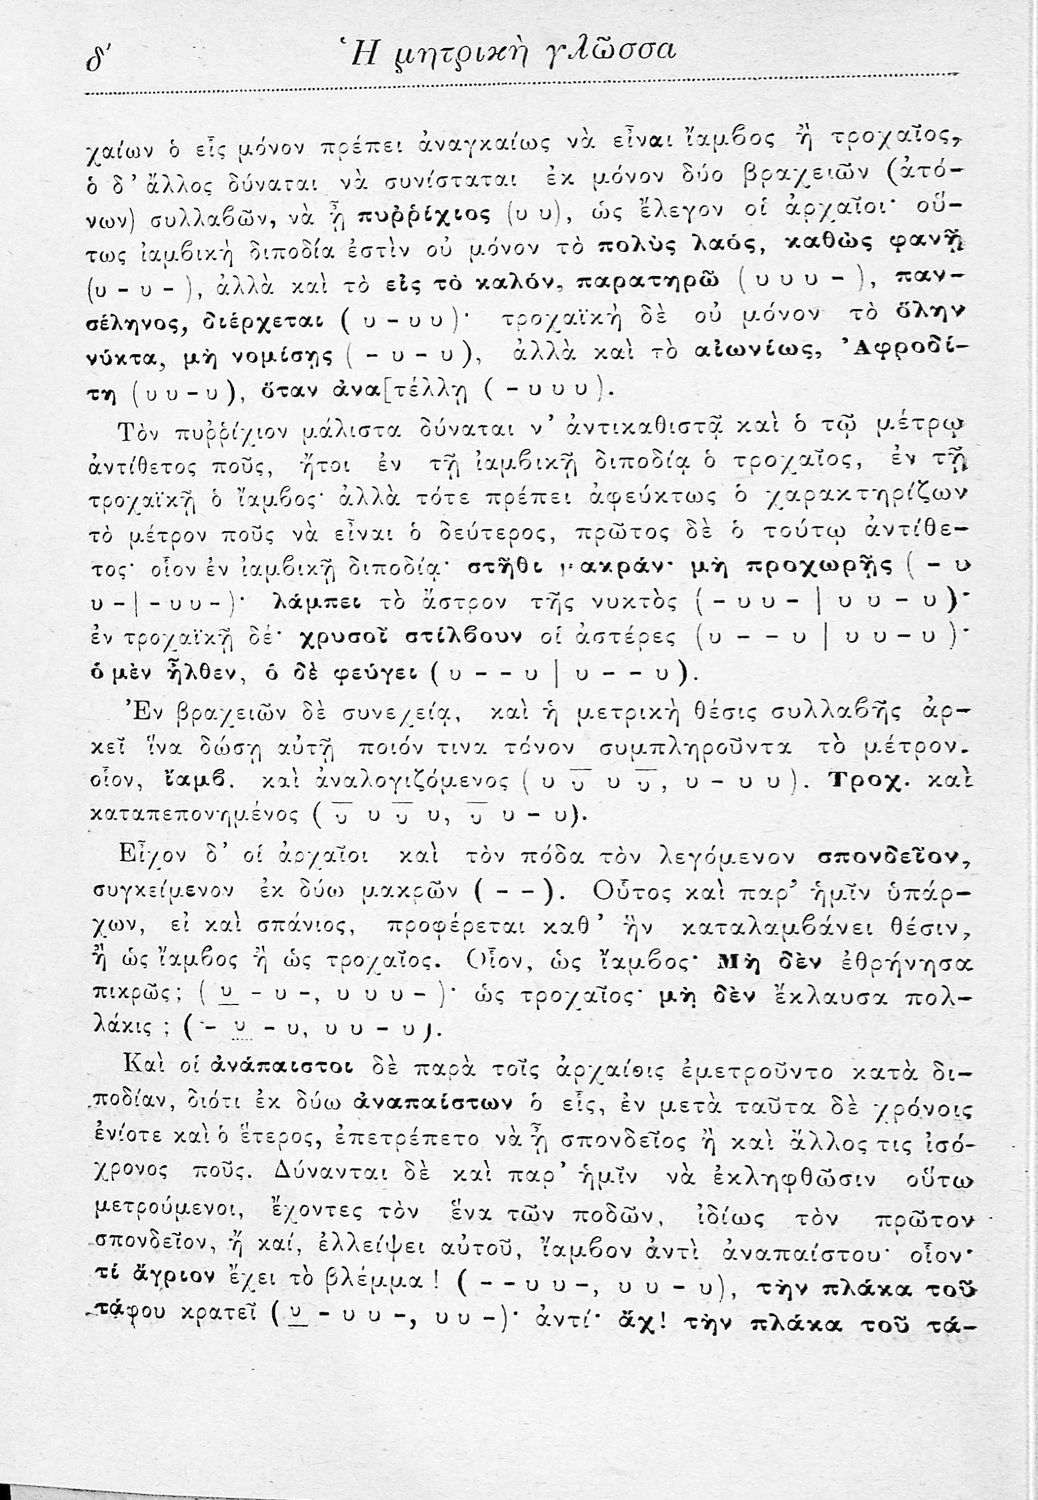 δ′ Ἡ μητρικὴ γλῶσσα
χαίων ὁ εἷς μόνον πρέπει ἀναγκαίως νὰ εἶναι ἴαμβος ἢ τροχαῖος,
ὁ δ' ἄλλος δύναται νὰ συνίσταται ἐκ μόνον δύο βραχειῶν (ἀτό-
νων) συλλαβῶν, νὰ ᾖ πυῤῥίχιος (υ υ), ὡς ἔλεγον οἱ ἀρχαῖοι· οὕ-
τως ἰαμβικὴ διποδία ἐστὶν οὐ μόνον τὸ πολὺς λαός, καθὼς φανῇ
(υ - υ - ), ἀλλὰ καὶ τὸ εἰς τὸ καλόν, παρατηρῶ ( υ υ υ - ), παν-
σέληνος, διέρχεται ( υ - υ υ )· τροχαϊκὴ δὲ οὐ μόνον τὸ ὅλην
νύκτα, μὴ νομίσῃς ( - υ - υ ), ἀλλὰ καὶ τὸ αἰωνίως, Ἀφροδί-
τη (υ υ - υ ), ὅταν ἀνα[τέλλῃ ( - υ υ υ ).
Τὸν πυῤῥίχιον μάλιστα δύναται ν' ἀντικαθιστᾷ καὶ ὁ τῷ μέτρῳ
ἀντίθετος ποῦς, ἤτοι ἐν τῇ ἰαμβικῇ διποδίᾳ ὁ τροχαῖος, ἐν τῇ
τροχαϊκῇ ὁ ἴαμβος· ἀλλὰ τότε πρέπει ἀφεύκτως ὁ χαρακτηρίζων
τὸ μέτρον ποῦς νὰ εἶναι ὁ δεύτερος, πρῶτος δὲ ὁ τούτῳ ἀντίθε-
τος· οἷον ἐν ἰαμβικῇ διποδίᾳ· στῆθι μακράν· μὴ προχωρῇς ( - υ
υ - | - υ υ - )· λάμπει τὸ ἄστρον τῆς νυκτὸς ( - υ υ - | υ υ - υ )·
ἐν τροχαϊκῇ δέ· χρυσοῖ στίλβουν οἱ ἀστέρες (υ - - υ | υ υ - υ )·
ὁ μὲν ἦλθεν, ὁ δὲ φεύγει ( υ - - υ | υ - - - υ ).
Ἐν βραχειῶν δὲ συνεχείᾳ, καὶ ἡ μετρικὴ θέσις συλλαβῆς ἀρ-
κεῖ ἵνα δώσῃ αὐτῇ ποιόν τινα τόνον συμπληροῦντα τὸ μέτρον.
οἷον, ἴαμβ. καὶ ἀναλογιζόμενος ( υ ῡ υ ῡ , υ - υ υ ). Τροχ. καὶ
καταπεπονημένος ( ῡ υ ῡ υ, ῡ υ - υ).
Εἶχον δ' οἱ ἀρχαῖοι καὶ τὸν πόδα τὸν λεγόμενον σπονδεῖον,
συγκείμενον ἐκ δύω μακρῶν ( - - ). Οὗτος καὶ παρ' ἡμῖν ὑπάρ-
χων, εἰ καὶ σπάνιος, προφέρεται καθ' ἣν καταλαμβάνει θέσιν,
ἢ ὡς ἴαμβος ἢ ὡς τροχαῖος. Οἷον, ὡς ἴαμβος· Μὴ δὲν ἐθρήνησα
πικρῶς; ( υ̲ - υ -, υ υ υ - )· ὡς τροχαῖος· μὴ δὲν ἔκλαυσα πολ-
λάκις ; ( - υ̲ - υ, υ υ - υ ).
Καὶ οἱ ἀνάπαιστοι δὲ παρὰ τοῖς ἀρχαίοις ἐμετροῦντο κατὰ δι-
ποδίαν, διότι ἐκ δύω ἀναπαίστων ὁ εἷς, ἐν μετὰ ταῦτα δὲ χρόνοις
ἐνίοτε καὶ ὁ ἕτερος, ἐπετρέπετο νὰ ᾖ σπονδεῖος ἢ καὶ ἄλλος τις ἰσό-
χρονος ποῦς. Δύνανται δὲ καὶ παρ' ἡμῖν νὰ ἐκληφθῶσιν οὕτω
μετρούμενοι, ἔχοντες τὸν ἕνα τῶν ποδῶν, ἰδίως τὸν πρῶτον
σπονδεῖον, ἢ καί, ἐλλείψει αὐτοῦ, ἴαμβον ἀντὶ ἀναπαίστου· οἷον·
τί ἄγριον ἔχει τὸ βλέμμα! ( - - υ υ -, υ υ - υ), τὴν πλάκα τοῦ
τάφου κρατεῖ ( υ̲ - υ υ -, υ υ -)· ἀντί· ἄχ! τὴν πλάκα τοῦ τά-